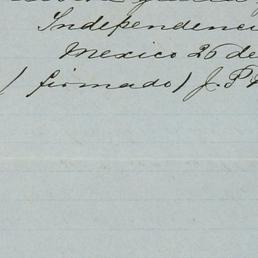 Independenci
Mexico 26 de
(firmado) J. P.